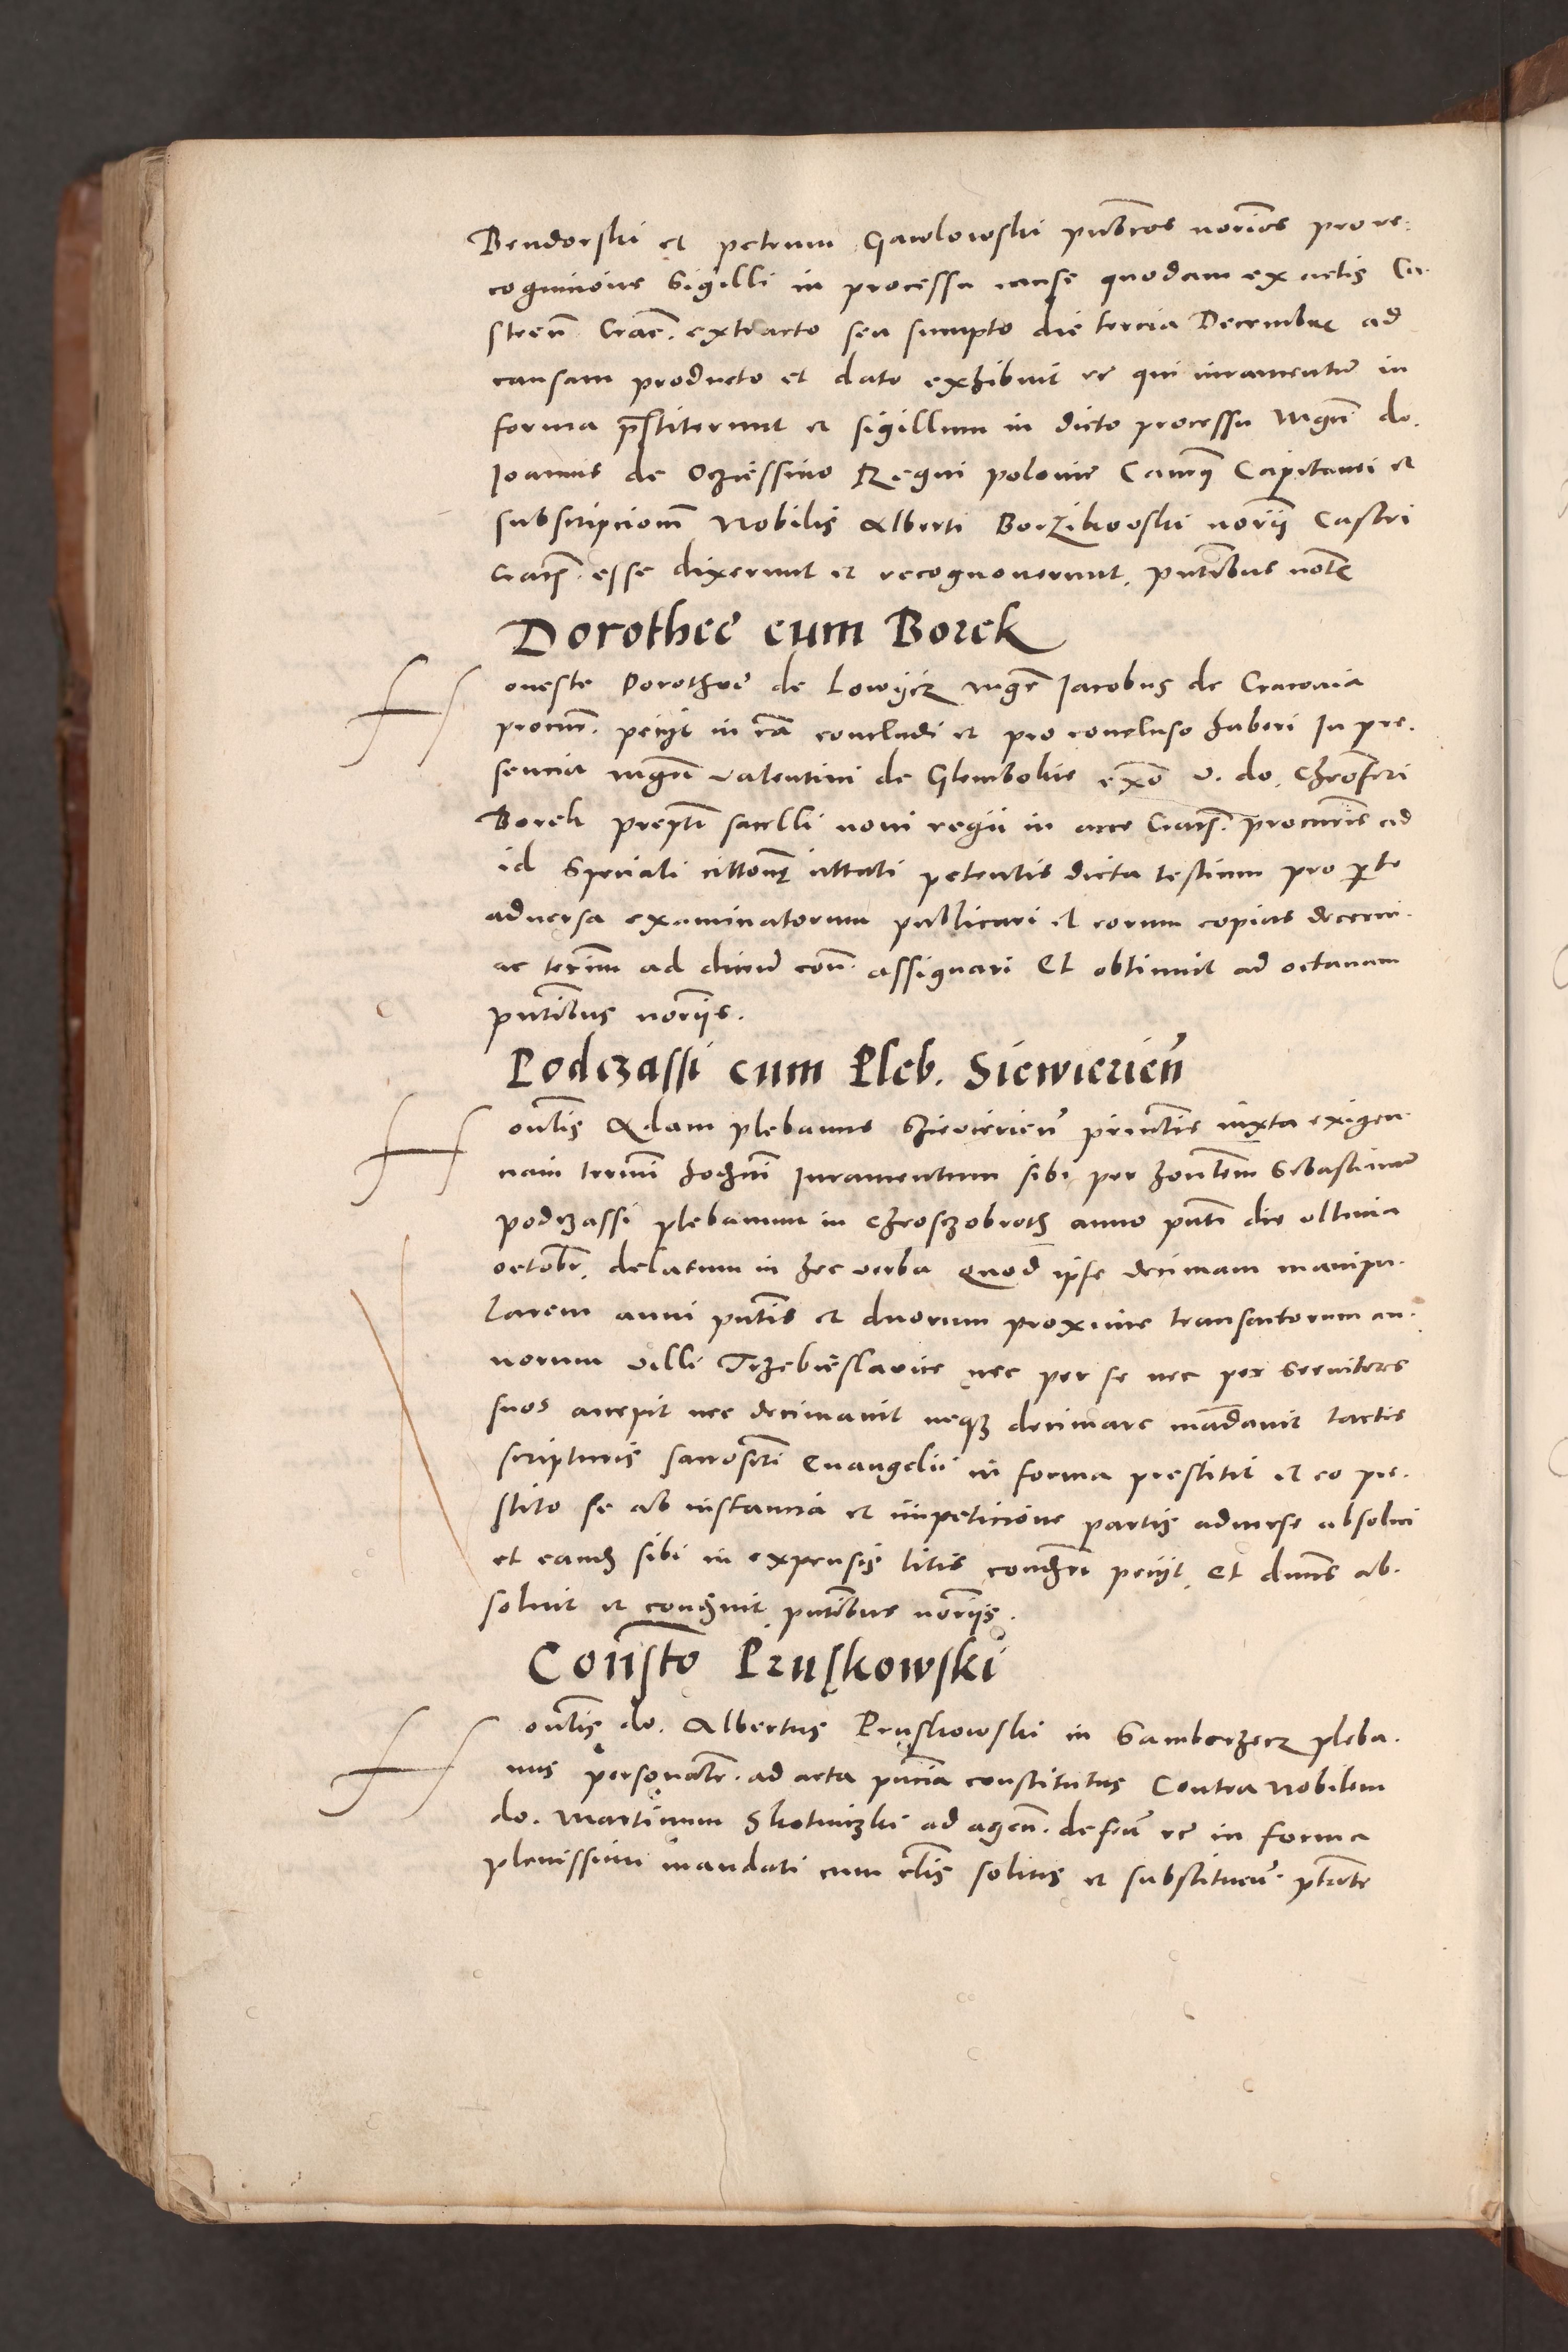 Bendorski et petrum Gawlowski pubcos norios pro re-
cognicione Sigilli in processu cause quodam ex actis Ca-
stren̄ Crac̄. extracto seu sumpto die tercia Decembr ad
causam producto et dato exhibuit rc̄ qui iuramentū in
forma p̄stiterunt et sigillum in dicto processu Mgn̄ do.
Joannis de Oczessino Regni polonie Capitanei et
subscripcionē Nobilis Alberti Borzikowski norij Castri
Crac̄. esse dixerunt et recognouerunt. pn̄tibus not̄
Dorothee cum Borek
Honeste Dorothee de Lowijcz mgr̄ Jacobus de Cracouia
procur̄. pecijt in cā concludi et pro concluso haberi In pre-
sencia mgr̄i valentini de Glembokie v. do. Chrōferi
Borek prep̄ti sacelli noui regii in arce Crac̄. procur̄is ad
id Speciali petentis dicta testium pro p̄te
aduersa examinatorum publicari et eorum copias decerni
ac ter̄im ad dicen̄ con̄ assignari Et obtinuit ad octauam
pn̄tibus norijs.
Podczassi cum Pleb. Siewierien̄
Hon̄tis Adam plebanus Sziewierien̄ prin̄tis iuxta exigen-
ciam termi hodier̄ni Iuramentum sibi per hon̄tem Sebastianū
podczassi plebanum in Chroszobroth anno pn̄ti die vltima
octobr̄. delatum in hec verba Quod ipse decimam manipu-
larem anni pn̄tis et duorum proxime transactorum an-
norum villi Trzebieslavice nec per se nec per Seruitores
suos accepit nec decimauit neqz decimare mādauit tactis
scripturis sacrosc̄ti Euangelii in forma prestitit et eo pre-
stito se ab instancia et impeticione partis aduerse absolui
et eandz sibi in expensis litis condem̄ri pecijt. Et dn̄us ab-
soluit et condem̄uit pn̄tibus norijs.
Con̄sto Pruskowski
Hon̄tis do. Albertus Pruskowski in Samborzecz pleba-
nus personalr̄. ad acta pn̄cia constitutus Contra Nobilem
do. Martinum Skotniczki ad agen̄. defen̄ rc̄ in forma
plenissimi mandati cum cl̄is solitis et substituen̄. pt̄ate